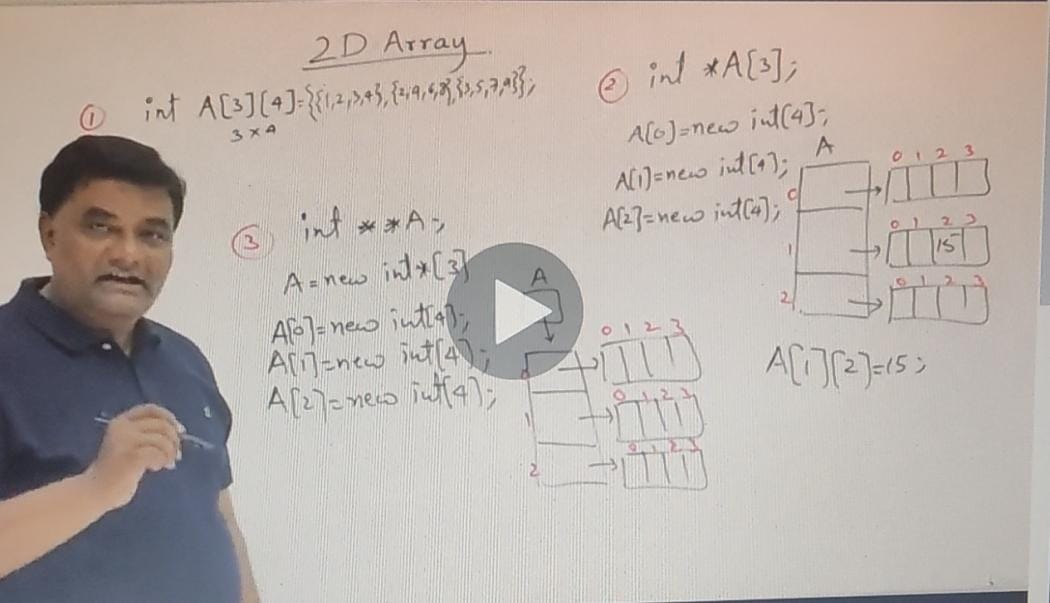 2D Array
① int A[3][4]={{1,2,3,4},{2,4,6,8},{3,5,7,9}};
3×4
② int *A[3];
A[0]=new int[4];
A[1]=new int[4];
A[2]=new int[4];
A
0 1 2 3
0
0 1 2 3
1
15
0 1 2 3
2
A[1][2]=15;
③ int **A;
A=new int*[3]
A[0]=new int[4];
A[1]=new int[4];
A[2]=new int[4];
A
0 1 2 3
0
0 1 2 3
1
0 1 2 3
2